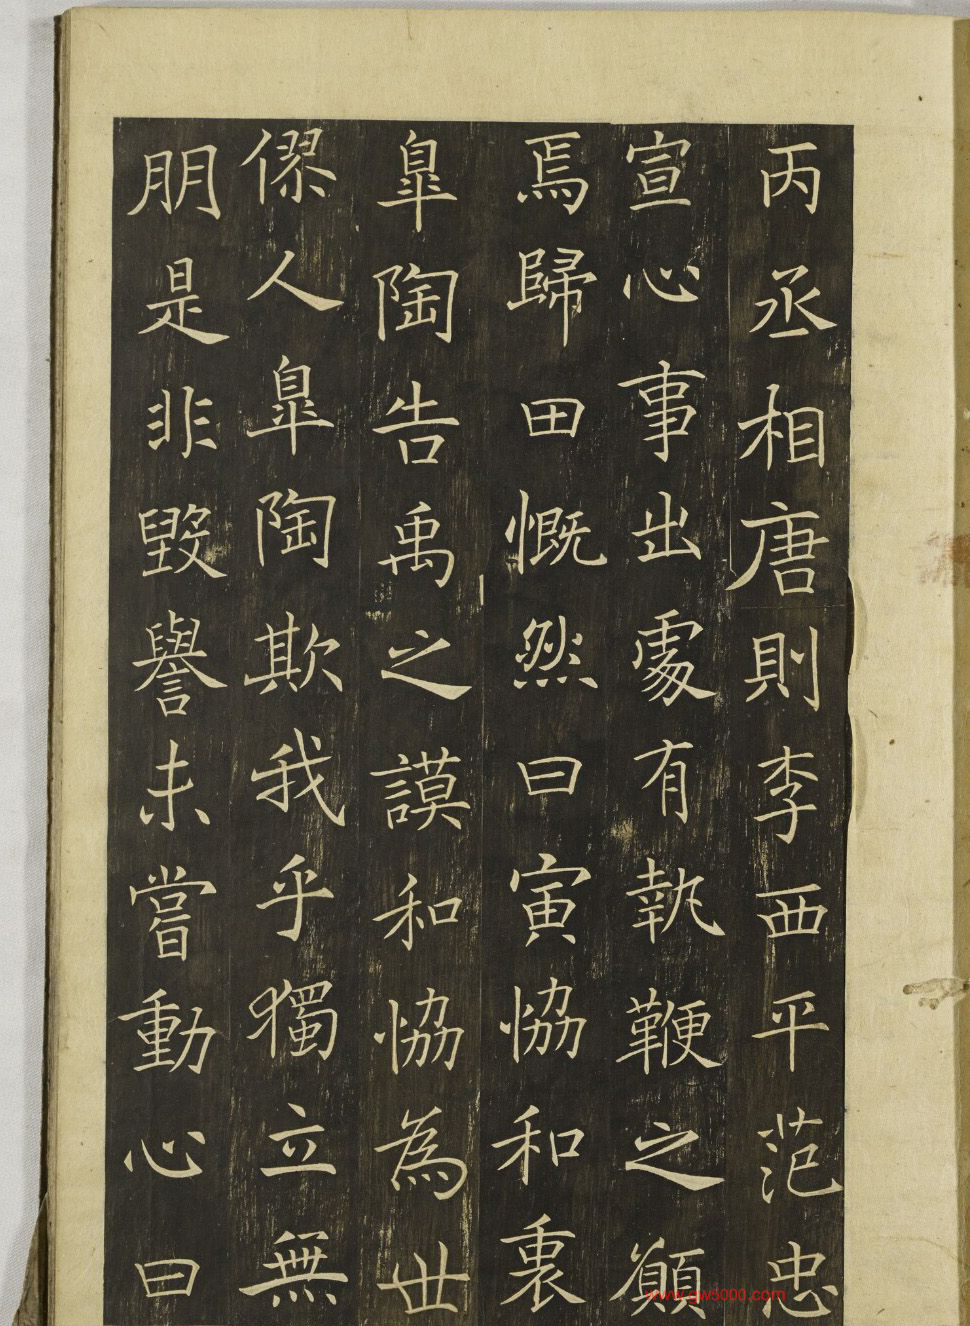 丙丞相唐則李西平范忠
宣心事出處有執鞭之願
焉歸田慨然曰寅恊和衷
皐陶告禹之謨和恊為世
僇人皐陶欺我乎獨立無
朋是非毀譽未嘗動心曰
www.gw5000.com